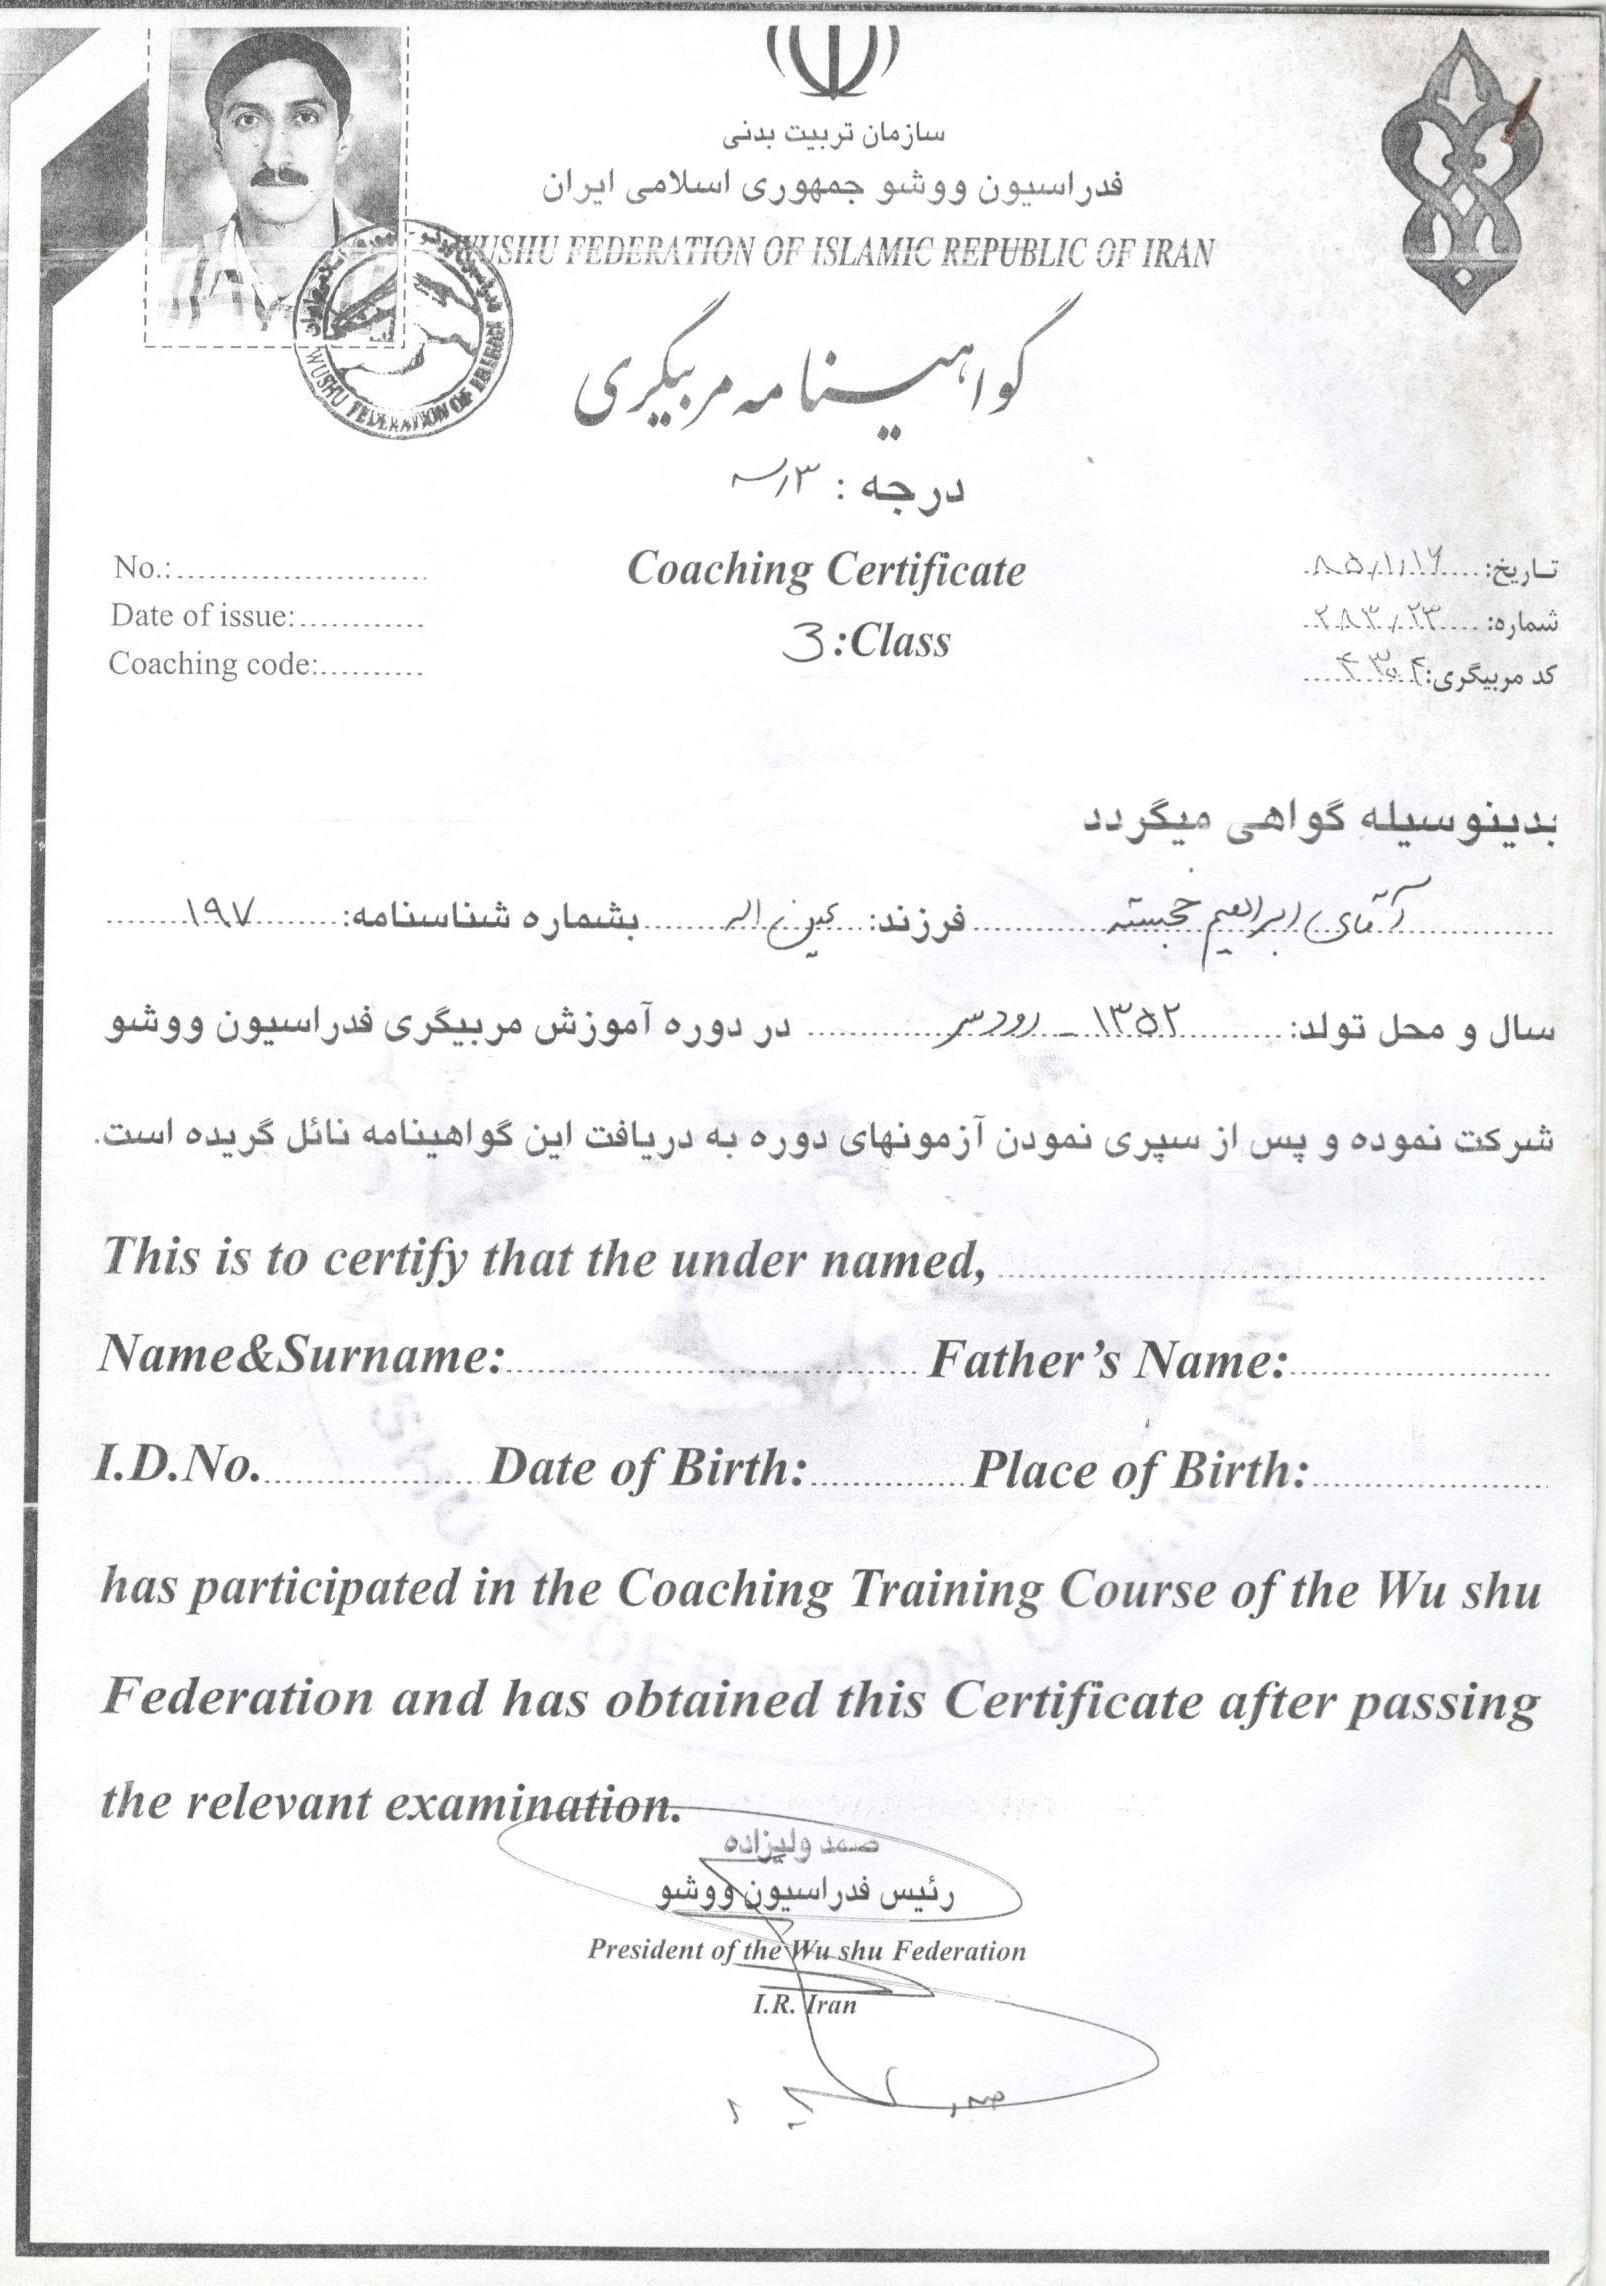 سازمان تربیت بدنی
فدراسیون ووشو جمهوری اسلامی ایران
WUSHU FEDERATION OF ISLAMIC REPUBLIC OF IRAN
WUSHU FEDERATION OF I.R.IRAN
گواهینامه مربیگری
درجه : ۳
Coaching Certificate
3 :Class
No.:
Date of issue:
Coaching code:
تاریخ: ۸۵/۱/۱۶
شماره: ۲۸۳/۲۳
کد مربیگری:
بدینوسیله گواهی میگردد
آقای ابراهیم خجسته فرزند: عین اله بشماره شناسنامه: ۱۹۷
سال و محل تولد: ۱۳۵۲ - رودسر در دوره آموزش مربیگری فدراسیون ووشو
شرکت نموده و پس از سپری نمودن آزمونهای دوره به دریافت این گواهینامه نائل گریده است.
This is to certify that the under named,
Name&Surname: Father's Name:
I.D.No. Date of Birth: Place of Birth:
has participated in the Coaching Training Course of the Wu shu
Federation and has obtained this Certificate after passing
the relevant examination.
صمد ولیزاده
رئیس فدراسیون ووشو
President of the Wu shu Federation
I.R. Iran